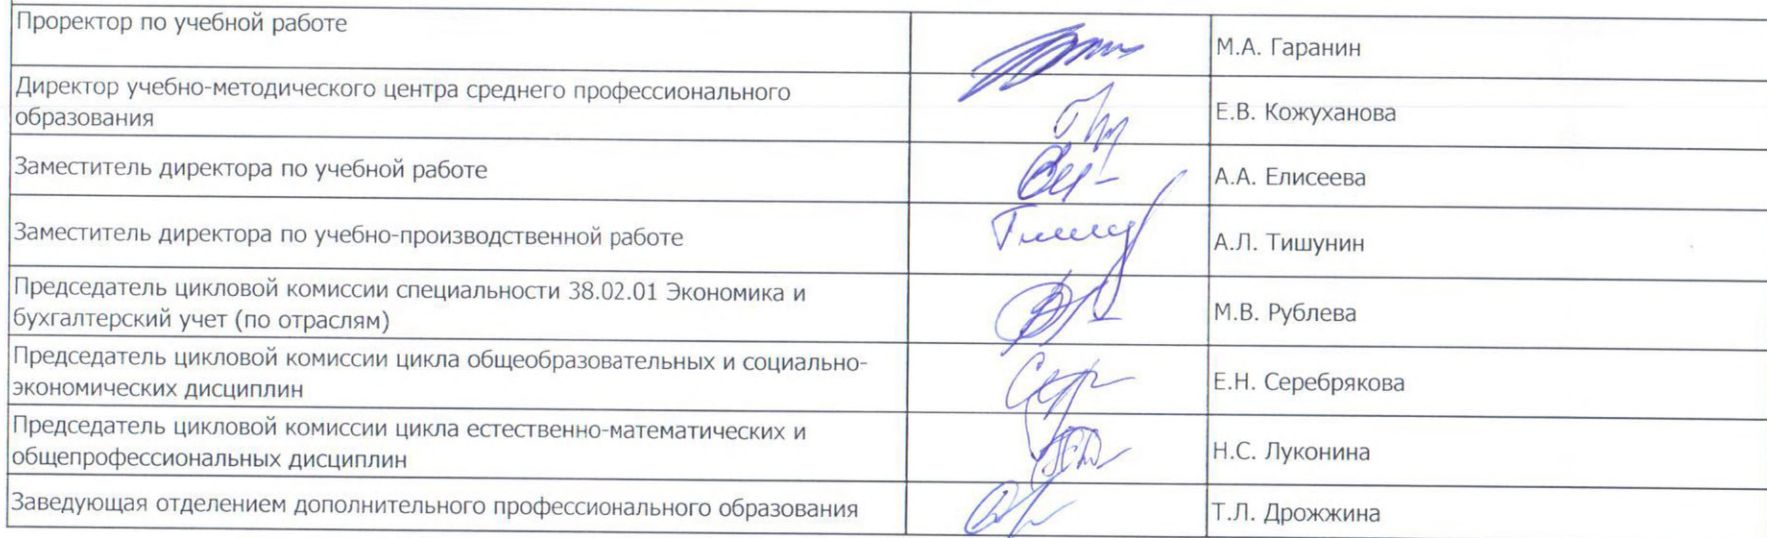 Проректор по учебной работе
М.А. Гаранин
Директор учебно-методического центра среднего профессионального
образования
Е.В. Кожуханова
Заместитель директора по учебной работе
А.А. Елисеева
Заместитель директора по учебно-производственной работе
А.Л. Тишунин
Председатель цикловой комиссии специальности 38.02.01 Экономика и
бухгалтерский учет (по отраслям)
М.В. Рублева
Председатель цикловой комиссии цикла общеобразовательных и социально-
экономических дисциплин
Е.Н. Серебрякова
Председатель цикловой комиссии цикла естественно-математических и
общепрофессиональных дисциплин
Н.С. Луконина
Заведующая отделением дополнительного профессионального образования
Т.Л. Дрожжина